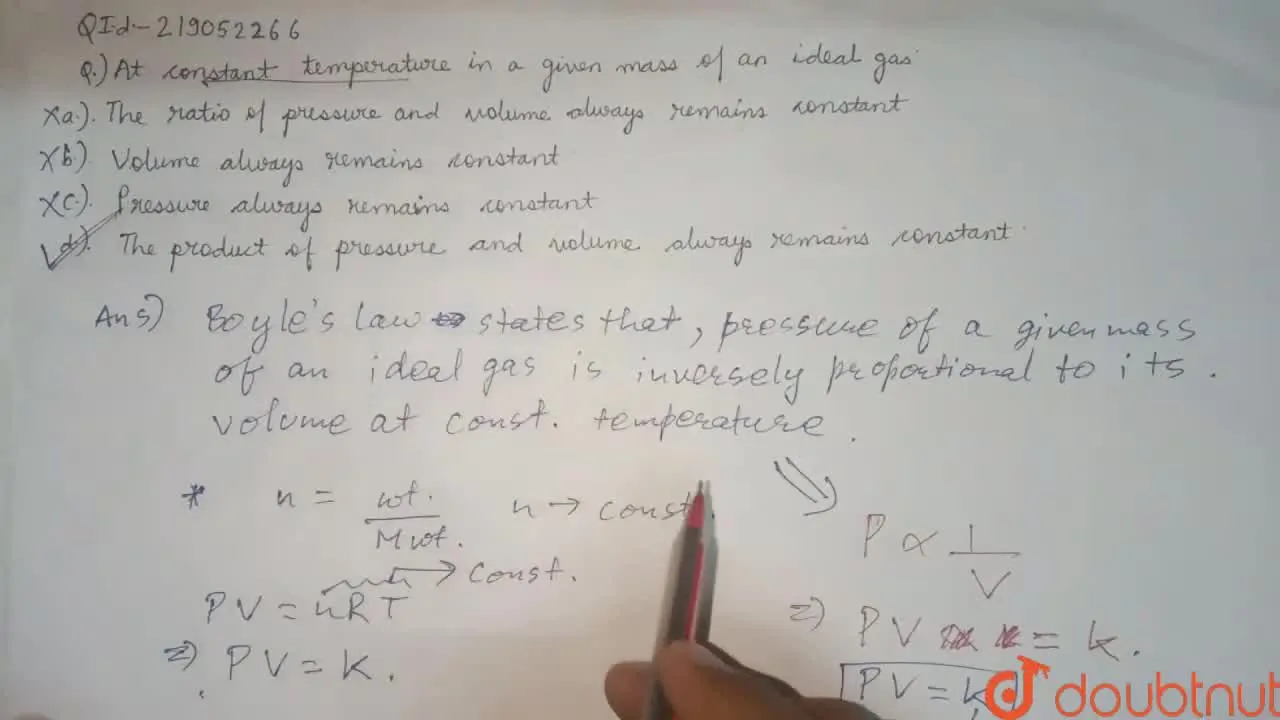 QId:-219052266
Q.) At constant temperature in a given mass of an ideal gas.
Xa.). The ratio of pressure and volume always remains constant
Xb.). Volume always remains constant
Xc.). Pressure always remains constant
✓d.). The product of pressure and volume always remains constant.
Ans) Boyle's law states that, pressure of a given mass
of an ideal gas is inversely proportional to its.
volume at const. temperature.
* n = wt. / Mwt. n → const.
P ∝ 1/V
PV = nRT → const.
⇒ PV = k.
⇒ PV = K.
PV = k
doubtnut